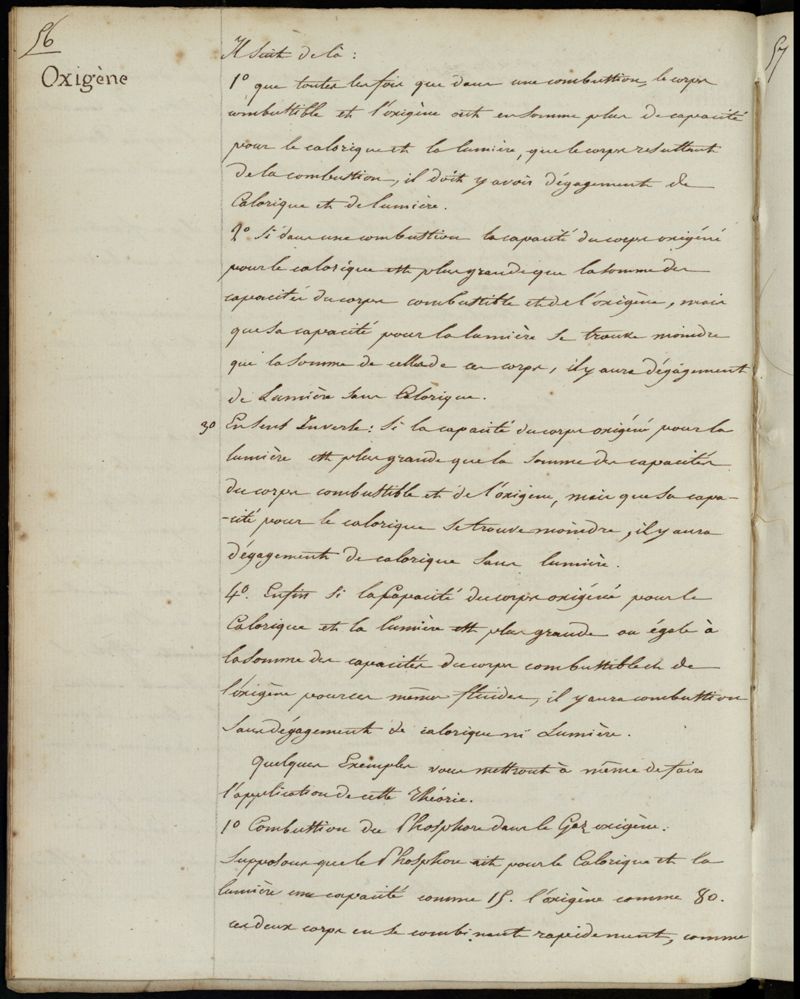 56
57
Oxigène
Il Suit de là :
1º que toutes les fois que dans une combustion, le corps
combustible et l'oxigène ont en somme plus de capacité
pour le calorique et la lumière, que le corps resultant
de la combustion, il doit y avoir dégagement de
Calorique et de lumière.
2º Si dans une combustion la capacité du corps oxigéné
pour le calorique est plus grande que la somme des
capacités du corps combustible et de l'oxigène, mais
que sa capacité pour la lumière se trouve moindre
que la somme de celles de ces corps, il y aura dégagement
de Lumière sans Calorique.
3º En sens Inverse : Si la capacité du corps oxigéné pour la
lumière est plus grande que la somme des capacités
du corps combustible et de l'oxigène, mais que sa capa-
-cité pour le calorique se trouve moindre, il y aura
dégagement de calorique sans lumière.
4º. Enfin Si la Capacité du corps oxigéné pour le
Calorique et la lumière est plus grande ou égale à
la somme des capacités du corps combustible et de
l'oxigène pour ces mêmes fluides, il y aura combustion
sans dégagement de calorique ni Lumière.
Quelques Exemples vous mettront à même de faire
l'application de cette Théorie.
1º Combustion du Phosphore dans le Gaz oxigène.
Supposons que le Phosphore ait pour le Calorique et la
lumière une capacité comme 15. l'oxigène comme 80.
ces deux corps en se combinant rapidement, comme